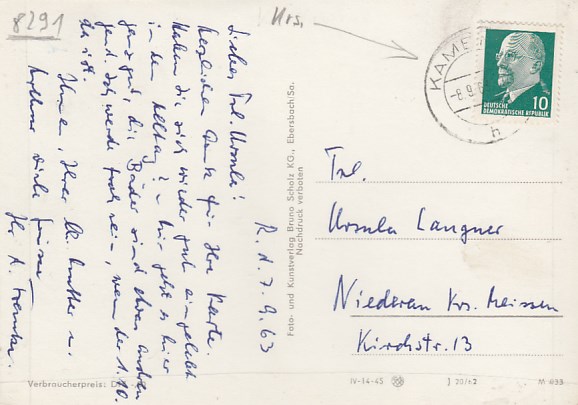 8291
Hrs.
KAME
-8.9.6
h
DEUTSCHE
DEMOKRATISCHE REPUBLIK
10
R. d. 7. 9. 63
Liebes Frl. Ursula!
herzlichen Dank für Ihre Karte.
Haben Sie sich wieder gut eingelebt
in den Alltag? – Mir geht es hier
ganz gut, die Bäder sind eben
Ich werde froh sein, wenn der 1. 10.
da ist.
Ihnen, Ihrer Mutter u.
viele Grüße
Ihr
Foto- und Kunstverlag Bruno Scholz KG., Ebersbach/Sa.
Nachdruck verboten
Frl.
Ursula Langner
Niederau Krs. Meissen
Kirchstr. 13
Verbraucherpreis:
IV-14-45
J 20/62
M 433